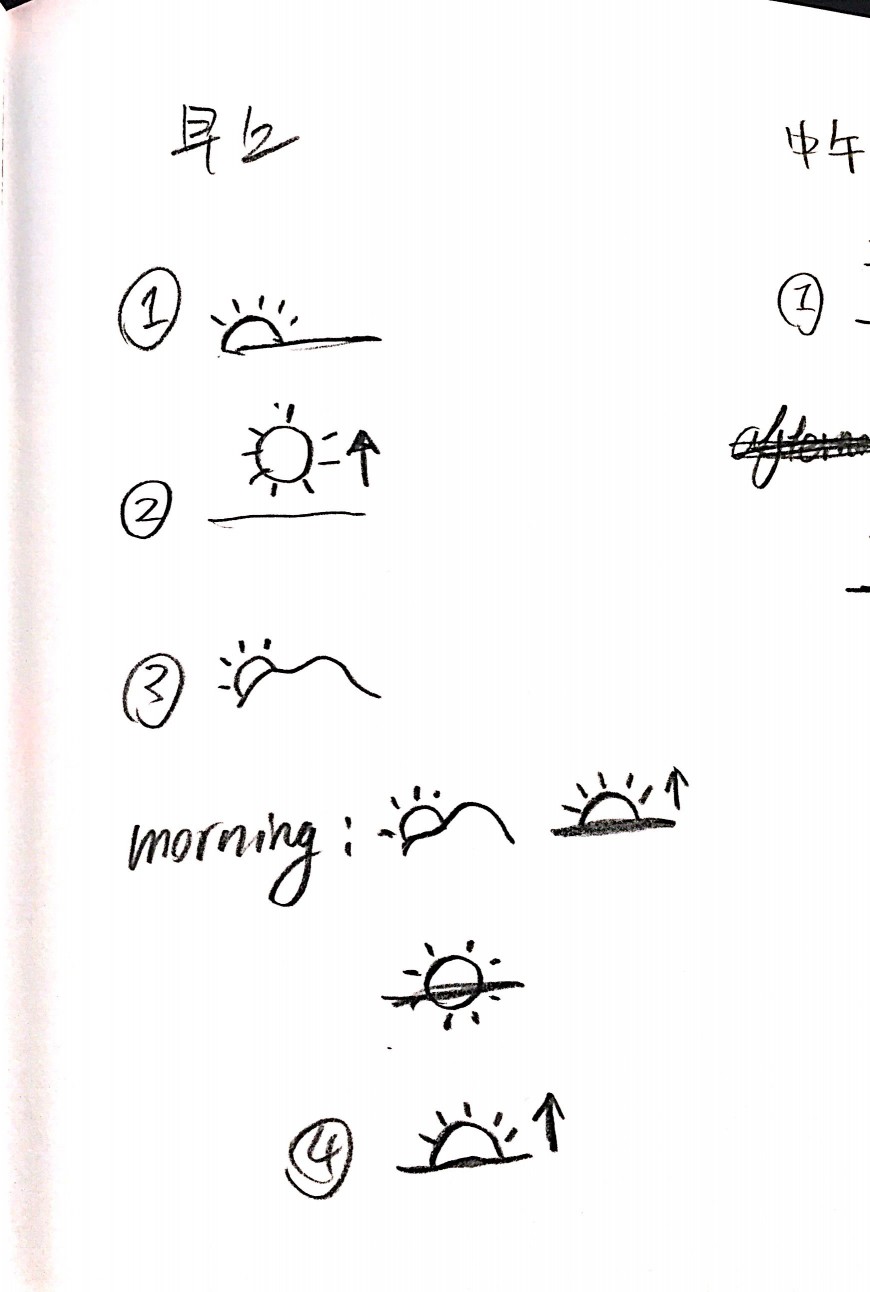 早上
中午
①
①
②
③
morning:
④